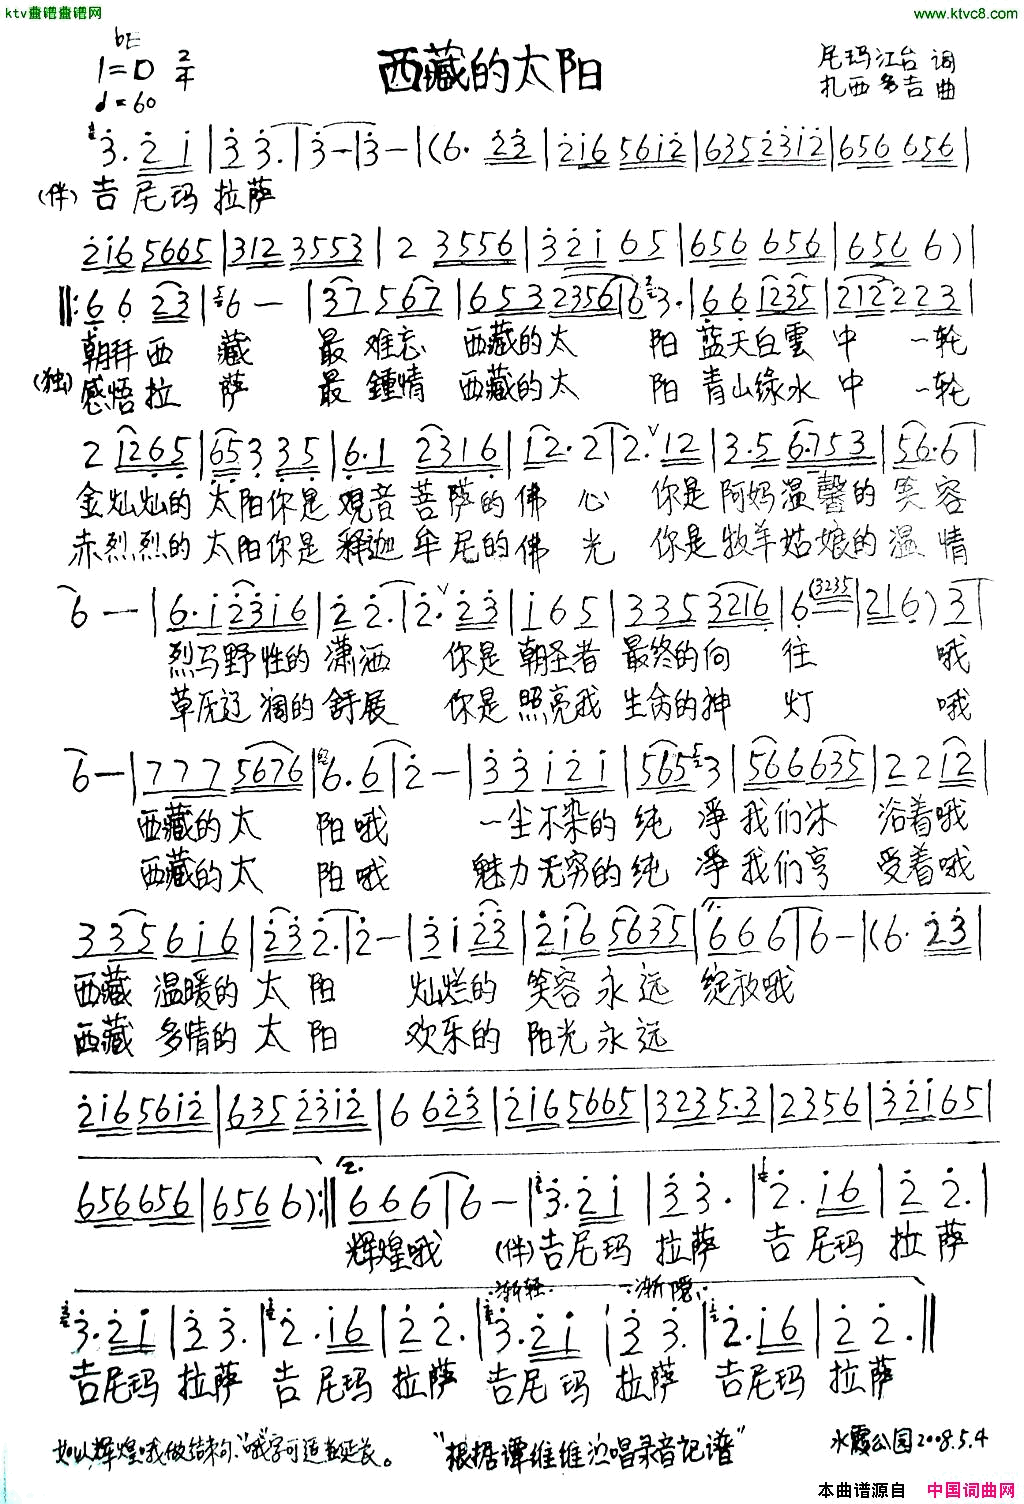 ktv歌谱歌谱网
www.ktvc8.com
bE
1=D 2/4
♩=60
西藏的太阳
尼玛江台 词
扎西多吉 曲
3. 2 1 | 3 3. | 3 - | 3 - | (6. 23 | 216 5612 | 635 2312 | 656 656 |
(伴) 吉尼玛拉萨
216 5665 | 312 3553 | 2 3556 | 321 65 | 656 656 | 656 6) |
||: 6 6 23 | 6 - | 37 567 | 653 2356 | 6 3. | 66 1235 | 212 223 |
朝拜西藏 最难忘 西藏的太 阳 蓝天白雲中 一轮
(独) 感悟拉萨 最鍾情 西藏的太 阳 青山绿水中 一轮
2 1265 | 653 335 | 6.1 2316 | 12. 2 | 2. ∨ 12 | 3.5 6.753 | 56.6 |
金灿灿的 太阳你是 观音菩萨的佛 心 你是阿妈温馨的笑容
赤烈烈的 太阳你是 释迦牟尼的佛 光 你是牧羊姑娘的温情
6 - | 6.1 2316 | 2 2. | 2. ∨ 23 | 1 6 5 | 335 3216 | 6 (3235 | 216) 3 |
烈马野性的潇洒 你是朝圣者 最终的向 往 哦
草原辽阔的舒展 你是照亮我 生命的神 灯 哦
6 - | 777 5676 | 6.6 | 2 - | 33 121 | 565 3 | 566 635 | 22 12 |
西藏的太 阳哦 一尘不染的纯 净我们沐 浴着哦
西藏的太 阳哦 魅力无穷的纯 净我们享 受着哦
335 616 | 23 2. | 2 - | 31 23 | 216 5635 | 666 | 6 - | (6. 23 |
西藏 温暖的太阳 灿烂的 笑容永远 绽放哦
西藏 多情的太阳 欢乐的 阳光永远
216 5612 | 635 2312 | 6 623 | 216 5665 | 3235.3 | 2356 | 32165 |
656 656 | 656 6) :|| 2. 666 | 6 - | 3. 21 | 3 3. | 2. 16 | 2 2. |
辉煌哦 (伴) 吉尼玛 拉萨 吉尼玛 拉萨
渐轻 渐隐
3. 21 | 3 3. | 2. 16 | 2 2. | 3. 21 | 3 3. | 2. 16 | 2 2. ||
吉尼玛 拉萨 吉尼玛 拉萨 吉尼玛 拉萨 吉尼玛 拉萨
如以辉煌哦做结束句，"哦"字可适当延长。
"根据谭维维演唱录音记谱"
水霞公园2008.5.4
本曲谱源自 中国词曲网